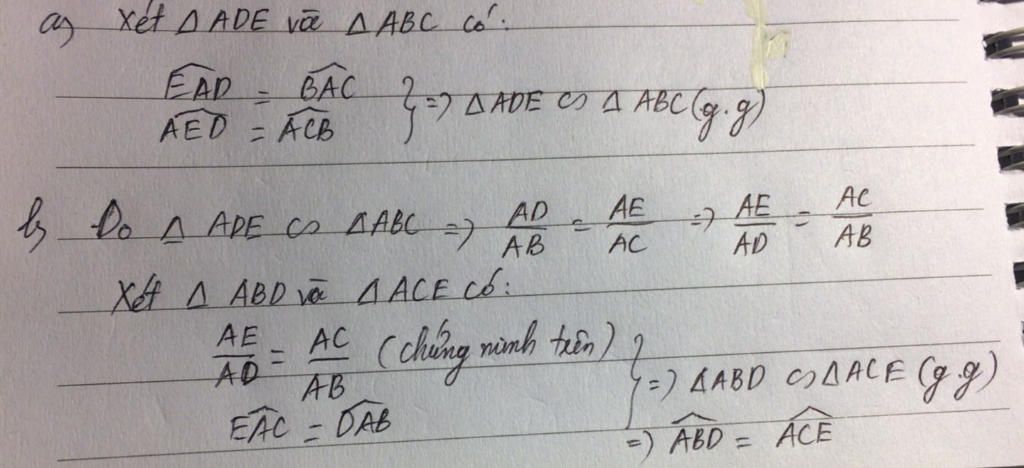 a) Xét Δ ADE và Δ ABC có:
\widehat{EAD} = \widehat{BAC}
\widehat{AED} = \widehat{ACB} } => Δ ADE ∽ Δ ABC (g.g)
b) Do Δ ADE ∽ ΔABC => AD/AB = AE/AC => AE/AD = AC/AB
Xét Δ ABD và Δ ACE có:
AE/AD = AC/AB (chứng minh trên)
\widehat{EAC} = \widehat{DAB} } => ΔABD ∽ ΔACE (g.g)
=> \widehat{ABD} = \widehat{ACE}